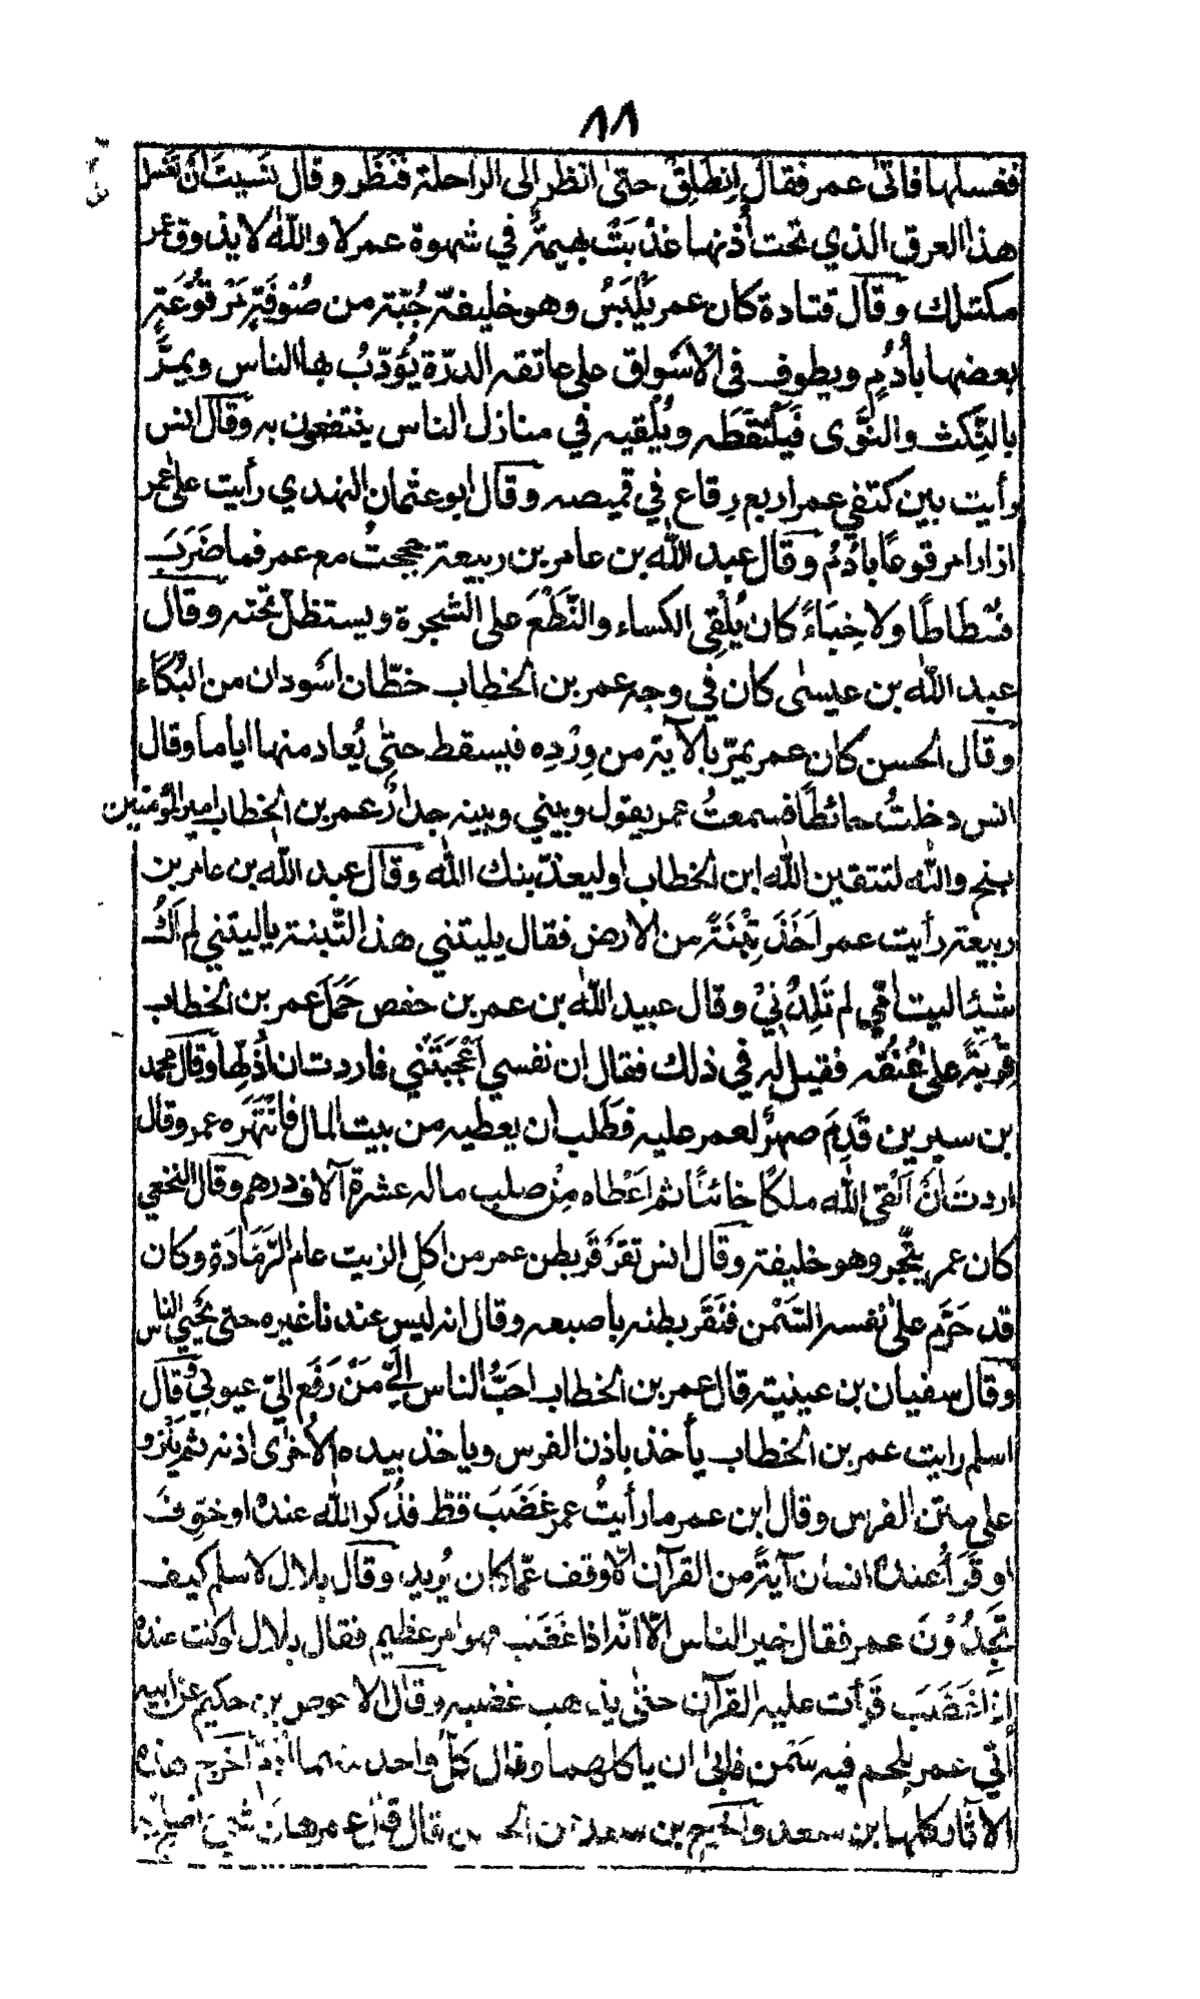 ٨٨
فغسلها فاتى عمر فقال اِنطَلِقْ حتى انظر الى الراحلة فَنَظَر وقال نَسيتَ أنْ تغسل
هذا العرق الذي تحت أُذنها عَذَّبَتْ بهيمةٌ في شهوة عمر لا والله لا يذوق عمر
مكتلك وقال قتادة كان عمر يَلْبَسُ وهو خليفة جُبّة من صُوفَةٍ مَرْقُوعَةٍ
بعضها بأُدُمٍ ويطوف فى الأسواق على عاتقه الدرّة يُؤدّبُ بها الناس ويمرُّ
بالنِّكث والنَّوَى فيَلْتَقِطَه ويُلْقيه في منازل الناس ينتفعون به وقال انس
رأيت بين كتفي عمر اربع رِقاع في قميصه وقال ابو عثمان النهدي رأيت على عمر
ازارا مرقوعًا بأَدُمٍ وقال عبد الله بن عامر بن ربيعة حججتُ مع عمر فما ضَرَبَ
فُسْطَاطًا ولا خِبَاءً كان يُلْقِى الكساء والنِّطْعَ على الشجرة ويستظل تحته وقال
عبد الله بن عيسى كان في وجه عمر بن الخطاب خطّان اسْودان من البُكاء
وقال الحسن كان عمر يمرّ بالآية من وِرْدِه فيسقط حتى يُعاد منها اياما وقال
انس دخلتُ حائطًا فسمعتُ عمر يقول وبيني وبينه جدارٌ عمر بن الخطاب امير المؤمنين
بخ والله لتتقين الله ابن الخطاب او ليعذّبنك الله وقال عبد الله بن عامر بن
ربيعة رأيت عمر اَخَذَ تِبْنَةً من الارض فقال يليتني هذا التبنة ياليتني لم اَكُ
شيئا ليت اُمّي لم تَلِدْني وقال عبيد الله بن عمر بن حفص حَمَلَ عمر بن الخطاب
قِرْبَةً على عُنُقه فقيل له في ذلك فقال ان نفسي اَعْجَبَتْني فاردت ان اُذِلّها وقال محمد
بن سيرين قَدِمَ صهرٌ لعمر عليه فطَلَب ان يعطيه من بيت المال فانْتَهَره عمر وقال
اردتَ اَنْ اَلْقى الله ملكًا خائنًا ثم اَعْطاه مِنْ صلب ماله عشرة آلاف درهم وقال النخعي
كان عمر يتّجر وهو خليفة وقال انس تقرْقَر بطن عمر من اكل الزيت عام الرّمَادَة وكان
قد حَرَّم على نفسه السَّمْن فنَقَر بطنه باصبعه وقال انه ليس عندنا غيره حتى يَحْيَى الناس
وقال سفيان بن عيينة قال عمر بن الخطاب احَبُّ الناس اِلَيَّ مَنْ رَفَع اليّ عيوبي وقال
اسلم رايت عمر بن الخطاب يأخذ باذن الفرس وياخذ بيده الأخرى اذنه ثم يَنْزو
على متن الفرس وقال ابن عمر ما رأيتُ عمر غضَبَ قط فذُكر الله عنده او خوّف
او قَرَأ عنده انسان آيةً من القرآن الّا وقف عمّا كان يُريد وقال بلال لاسلم كيف
تَجِدُوْنَ عمر فقال خير الناس الّا انّه اذا غَضَب فهو امر عظيم فقال بلال لو كنت عنده
اذا غَضَبَ قرأت عليه القرآن حتى يذهب غضبه وقال الاحوص بن حكيم عن ابيه
أُتي عمر بلحم فيه سَمْن فابى ان ياكلهما وقال كلُّ واحد منهما اُدُمٌ اخرج هذه
الآثار كلها ابن سعد واخرج بن سعد عن الحسن قال قال عمر هان شيئ اصلح به